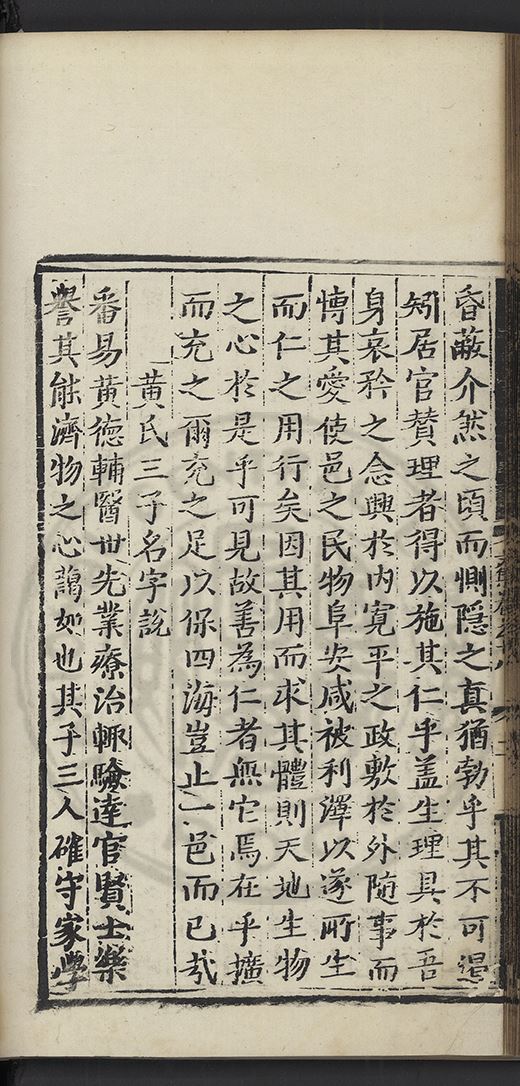 昏蔽介然之頃而惻隱之真猶勃乎其不可遏
矧居官賛理者得以施其仁乎盖生理具於吾
身哀矜之念興於内寛平之政敷於外隨事而
愽其愛使邑之民物阜安咸被利澤以遂所生
而仁之用行矣因其用而求其體則天地生物
之心於是乎可見故善為仁者無它焉在乎擴
而充之爾充之足以保四海豈止一邑而已㢤
黄氏三子名字說
番昜黄德輔醫世先業療治輙驗達官賢士樂
譽其能濟物之心藹如也其子三人確守家學